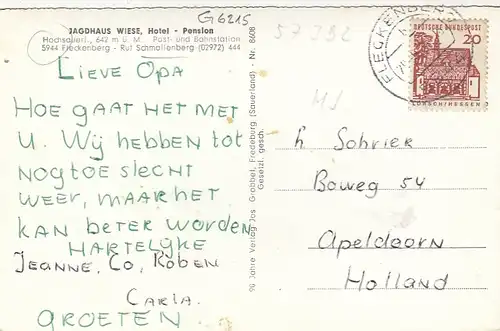 G 6215
57 392
JAGDHAUS WIESE, Hotel - Pension
Hochsauerl., 642 m ü. M. Post- und Bahnstation
5944 Fleckenberg - Ruf Schmallenberg (02972) 444
LIEVE OPA
HOE GAAT HET MET
U. WIJ HEBBEN TOT
NOG TOE SLECHT
WEER, MAAR HET
KAN BETER WORDEN
HARTELIJKE
JEANNE, CO, ROBEN
CARLA.
GROETEN.
90 Jahre Verlag Jos. Grobbel, Fredeburg (Sauerland) - Nr. 8608
Gesetzl. gesch.
FLECKENBERG
DEUTSCHE BUNDESPOST
20
LORSCH/HESSEN
h Sohrier
Boweg 54
Apeldoorn
Holland